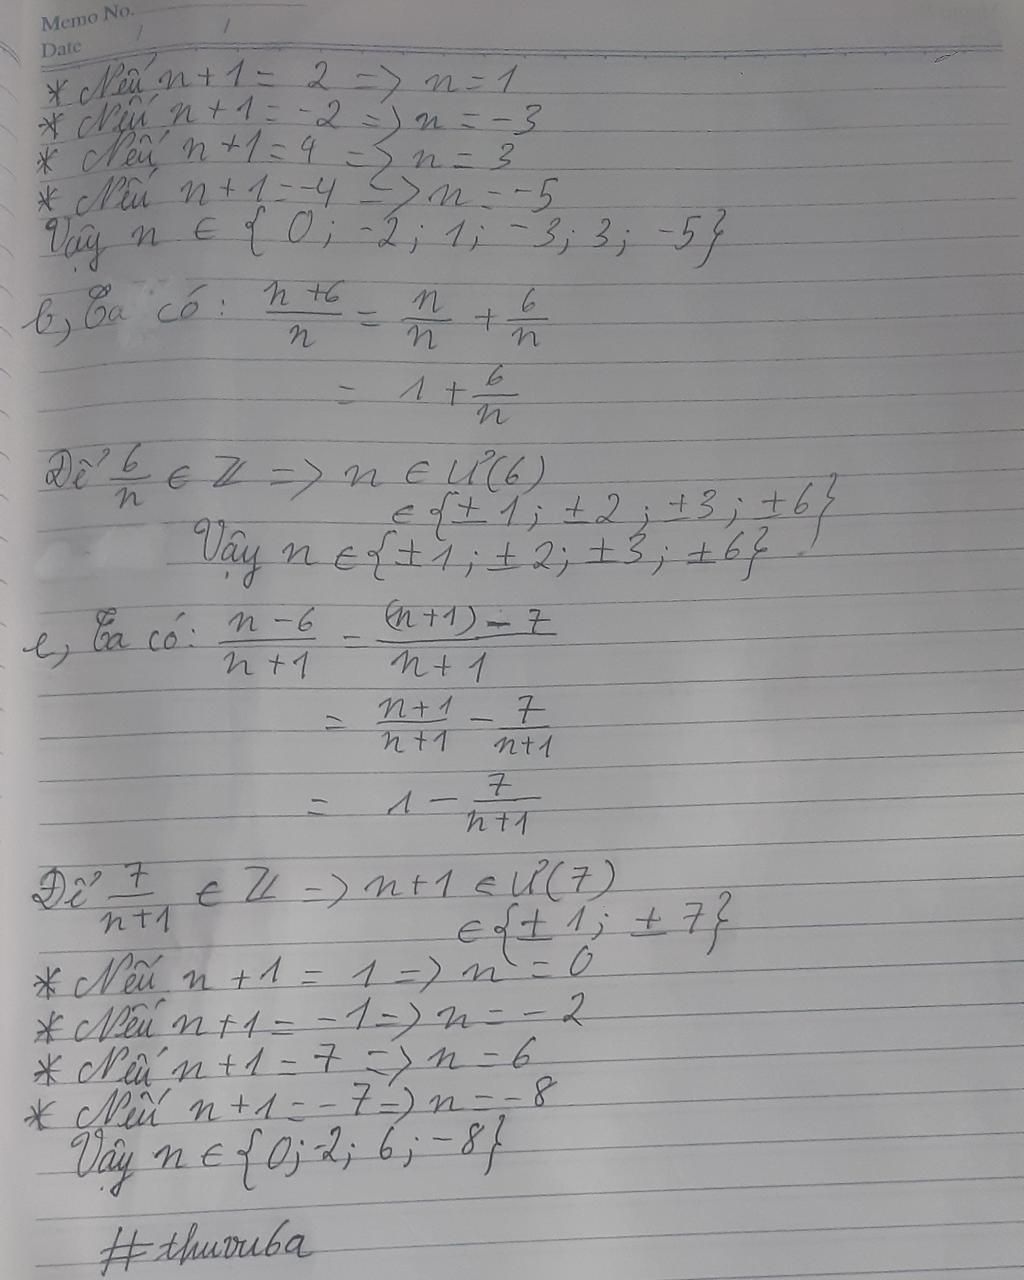 Memo No.
Date / /
* Nếu n + 1 = 2 => n = 1
* Nếu n + 1 = -2 => n = -3
* Nếu n + 1 = 4 => n = 3
* Nếu n + 1 = -4 => n = -5
Vậy n ∈ { 0; -2; 1; -3; 3; -5}
b, Ta có: (n+6)/n = n/n + 6/n
= 1 + 6/n
Để 6/n ∈ Z => n ∈ Ư(6)
∈ {± 1; ± 2; ± 3; ± 6}
Vậy n ∈ {± 1; ± 2; ± 3; ± 6}
c, Ta có: (n - 6)/(n + 1) = ((n+1) - 7)/(n + 1)
= (n+1)/(n+1) - 7/(n+1)
= 1 - 7/(n+1)
Để 7/(n+1) ∈ Z => n+1 ∈ Ư(7)
∈ {± 1; ± 7}
* Nếu n + 1 = 1 => n = 0
* Nếu n + 1 = -1 => n = -2
* Nếu n + 1 = 7 => n = 6
* Nếu n + 1 = -7 => n = -8
Vậy n ∈ {0; -2; 6; -8}
#thuvu6a